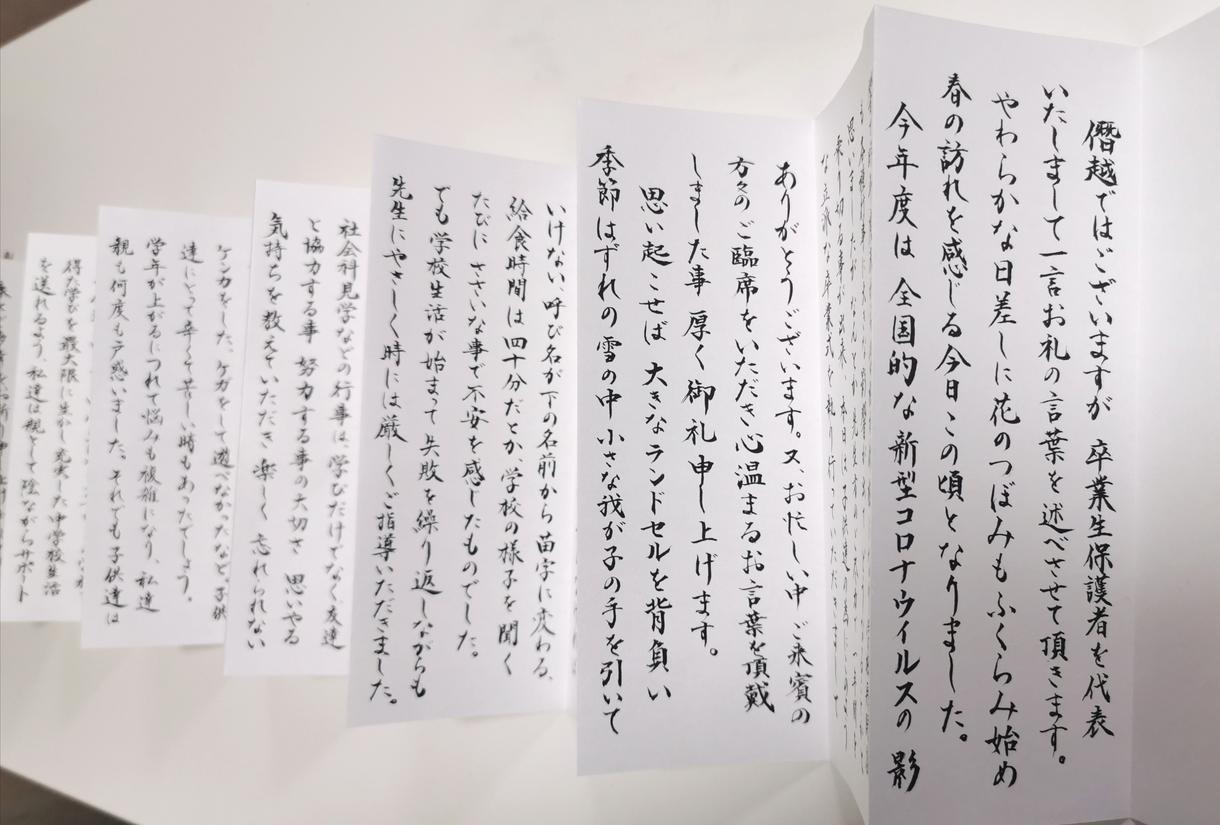 僭越ではございますが 卒業生保護者を代表
いたしまして一言お礼の言葉を述べさせて頂きます。
やわらかな日差しに花のつぼみもふくらみ始め
春の訪れを感じる今日この頃となりました。
今年度は 全国的な 新型コロナウイルスの 影
な立派な卒業式を執り行っていただきまして
ありがとうございます。又、お忙しい中 ご来賓の
方々のご臨席をいただき心温まるお言葉を頂戴
しました事 厚く御礼申し上げます。
思い起こせば 大きなランドセルを背負い
季節はずれの雪の中 小さな我が子の手を引いて
いけない、呼び名が下の名前から苗字に変わる、
給食時間は四十分だとか、学校の様子を聞く
たびに ささいな事で不安を感じたものでした。
でも学校生活が始まって失敗を繰り返しながらも
先生にやさしく時には厳しくご指導いただきました。
社会科見学などの行事は、学びだけでなく友達
と協力する事 努力する事の大切さ 思いやる
気持ちを教えていただき楽しく 忘れられない
ケンカをした、ケガをして遊べなかったなど。子供
達にとって辛くて苦しい時もあったでしょう。
学年が上がるにつれて悩みも複雑になり、私達
親も何度も戸惑いました。それでも子供達は
得た学びを最大限に生かし充実した中学校生活
を送れるよう、私達は親として陰ながらサポート